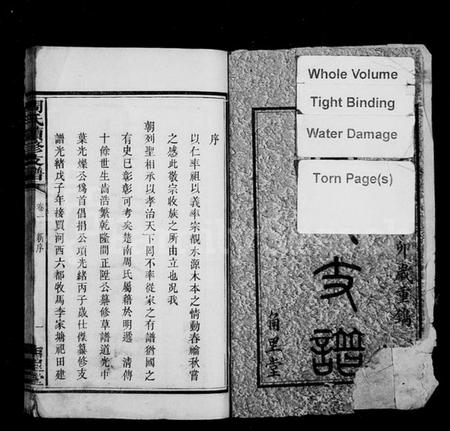 Whole Volume
Tight Binding
Water Damage
Torn Page(s)
卯歲重鐫
支譜
角里堂
序
以仁率祖以義率宗報水源木本之情動春禴秋嘗
之感此敬宗收族之所由立也况我
朝列聖相承以孝治天下罔不率從家之有譜猶國之
有史已彰彰可考矣楚南周氏屬籍於明遞 清傳
十餘世生齒浩繁乾隆間正陞公纂修草譜道光中
葉光燦公為首倡捐公項光緒丙子歲仕傑纂修支
譜光緒戊子年接買河西六都收馬李家塘祀田建
周氏續修支譜
卷一 新序
一
角里堂